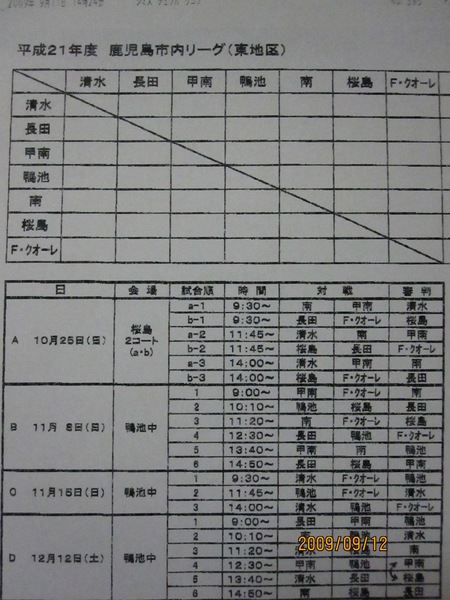 平成21年度 鹿児島市内リーグ(東地区)
清水 長田 甲南 鴨池 南 桜島 F・クオーレ
清水
長田
甲南
鴨池
南
桜島
F・クオーレ
日 会場 試合順 時間 対戦 審判
A 10月25日(日) 桜島 2コート (a・b)
a-1 9:30~ 南 甲南 清水
b-1 9:30~ 長田 F・クオーレ 桜島
a-2 11:45~ 清水 南 甲南
b-2 11:45~ 桜島 長田 F・クオーレ
a-3 14:00~ 清水 甲南 南
b-3 14:00~ 桜島 F・クオーレ 長田
B 11月 8日(日) 鴨池中
1 9:00~ 甲南 F・クオーレ 南
2 10:10~ 鴨池 桜島 長田
3 11:20~ 南 F・クオーレ 桜島
4 12:30~ 長田 鴨池 F・クオーレ
5 13:40~ 甲南 南 鴨池
6 14:50~ 長田 桜島 甲南
C 11月15日(日) 鴨池中
1 9:30~ 清水 F・クオーレ 鴨池
2 11:45~ 鴨池 F・クオーレ 清水
3 14:00~ 清水 鴨池 F・クオーレ
D 12月12日(土) 鴨池中
1 9:00~ 長田 甲南 鴨池
2 10:10~ 清水 鴨池 長田
3 11:20~ 桜島 南
4 12:30~ 甲南 鴨池 甲南
5 13:40~ 清水 長田 桜島
6 14:50~ 南 桜島 長田
2009/09/12